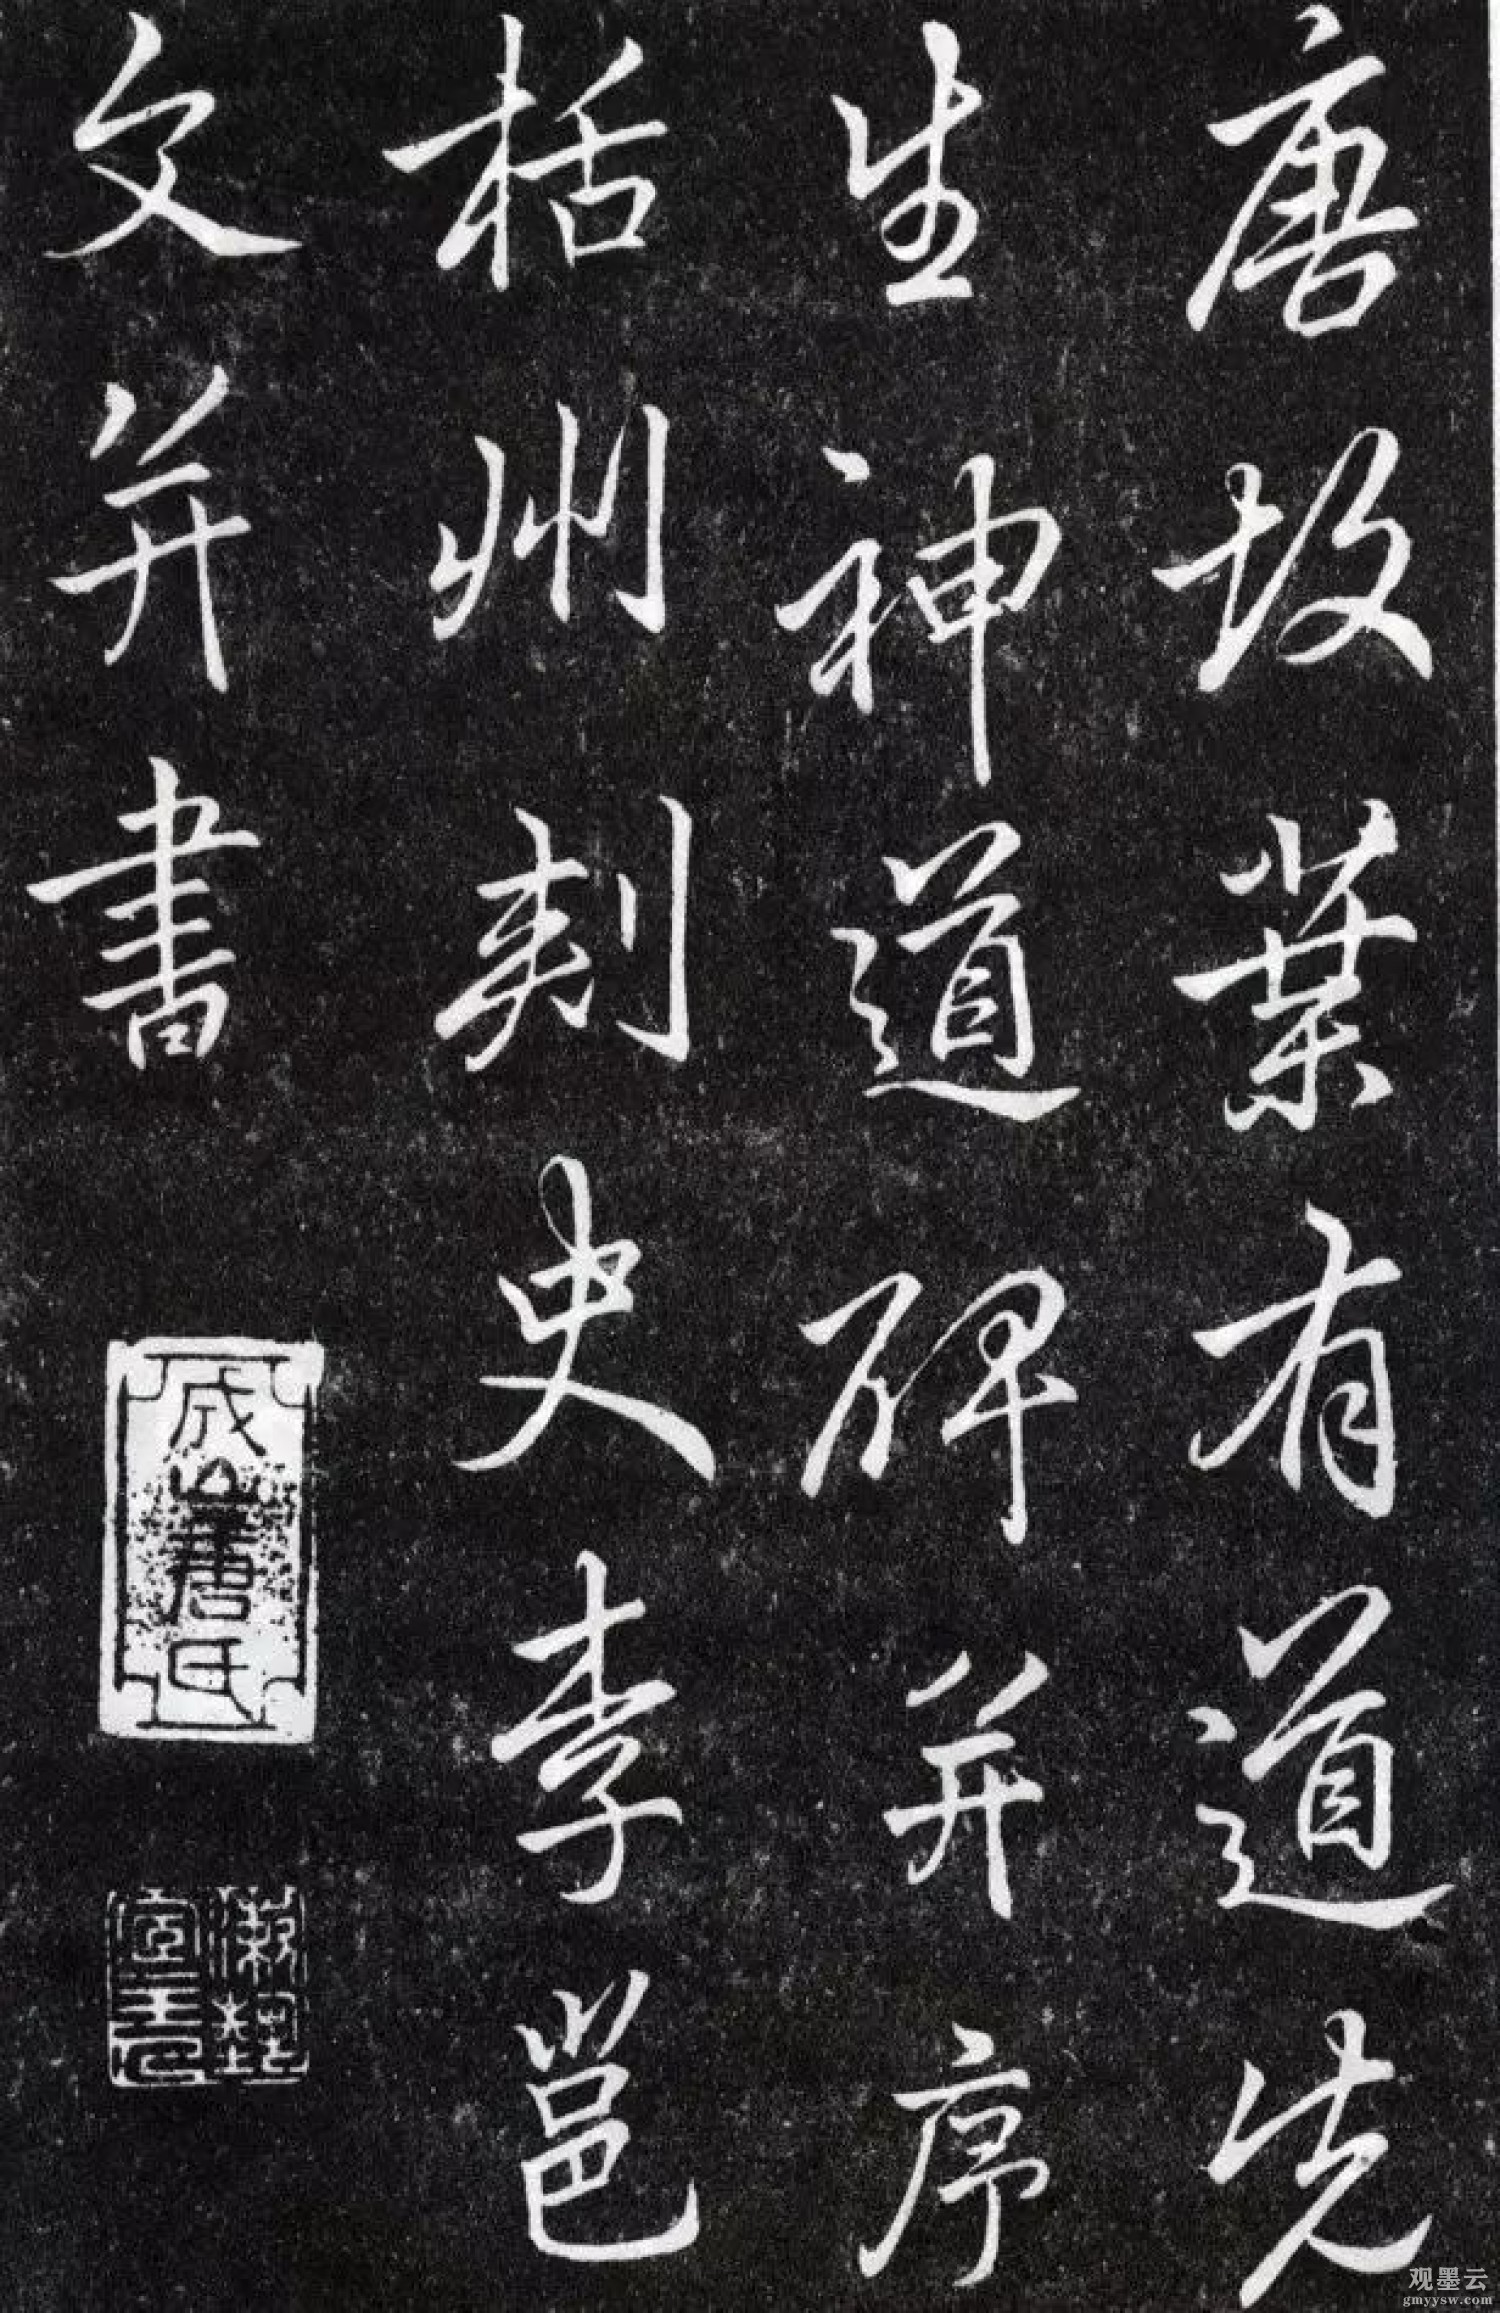 唐故葉有道先
生神道碑并序
括州刺史李邕
文并書
观墨云
gmyysw.com